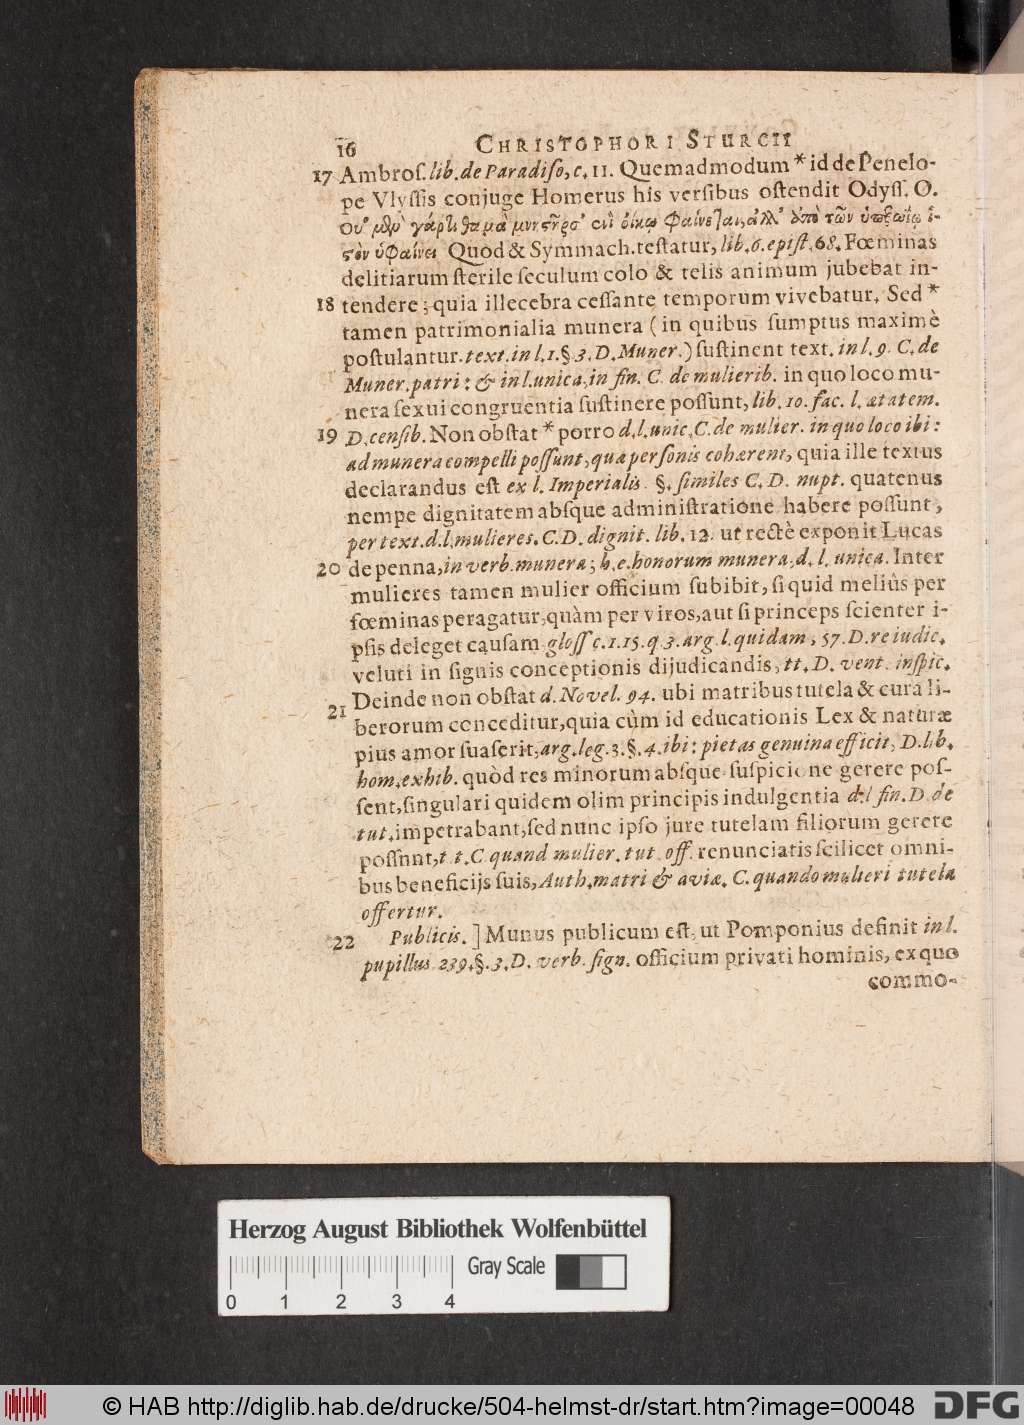 16 CHRISTOPHORI STURCII
17 Ambroſ. lib. de Paradiſo, c. 11. Quemadmodum * id de Penelo-
pe Vlyſſis conjuge Homerus his verſibus oſtendit Odyſſ. O.
Οὐ μὲν γάρ τι θαμὰ μνηςῆρσ' ἐνὶ οἴκῳ φαίνεται, ἀλλ' ἀπὸ τῶν ὑπερωΐῳ ἱ-
ςὸν ὑφαίνει Quod & Symmach. teſtatur, lib. 6. epiſt. 68. Fœminas
delitiarum ſterile ſeculum colo & telis animum jubebat in-
18 tendere; quia illecebra ceſſante temporum vivebatur. Sed *
tamen patrimonialia munera (in quibus ſumptus maximè
poſtulantur. text. in l. 1. §. 3. D. Muner.) ſuſtinent text. in l. 9. C. de
Muner. patri: & in l. unica, in fin. C. de mulierib. in quo loco mu-
nera ſexui congruentia ſuſtinere poſſunt, lib. 10. fac. l. ætatem.
19 D. cenſib. Non obſtat * porro d. l. unic. C. de mulier. in quo loco ibi:
ad munera compelli poſſunt, quæ perſonis cohærent, quia ille textus
declarandus eſt ex l. Imperialis. §. ſimiles C. D. nupt. quatenus
nempe dignitatem abſque adminiſtratione habere poſſunt,
per text. d. l. mulieres. C. D. dignit. lib. 12. ut rectè exponit Lucas
20 de penna, in verb. munera; h. e. honorum munera, d. l. unica. Inter
mulieres tamen mulier officium ſubibit, ſi quid meliûs per
fœminas peragatur, quàm per viros, aut ſi princeps ſcienter i-
pſis deleget cauſam gloſſ c. 1. 15. q. 3. arg. l. quidam, 57. D. re iudic.
veluti in ſignis conceptionis dijudicandis, tt. D. vent. inſpic.
21 Deinde non obſtat d. Novel. 94. ubi matribus tutela & cura li-
berorum conceditur, quia cùm id educationis Lex & naturæ
pius amor ſuaſerit, arg. leg. 3. §. 4. ibi: pietas genuina efficit, D. lib.
hom. exhib. quòd res minorum abſque ſuſpicione gerere poſ-
ſent, ſingulari quidem olim principis indulgentia d. l fin. D. de
tut. impetrabant, ſed nunc ipſo jure tutelam filiorum gerere
poſſnnt, t t. C quand mulier. tut off. renunciatis ſcilicet omni-
bus beneficijs ſuis, Auth. matri & aviæ. C. quando mulieri tutela
offertur.
22 Publicis. ] Munus publicum eſt, ut Pomponius definit in l.
pupillus 239. §. 3. D. verb. ſign. officium privati hominis, ex quo
commo-
Herzog August Bibliothek Wolfenbüttel
Gray Scale
0 1 2 3 4
© HAB http://diglib.hab.de/drucke/504-helmst-dr/start.htm?image=00048
DFG